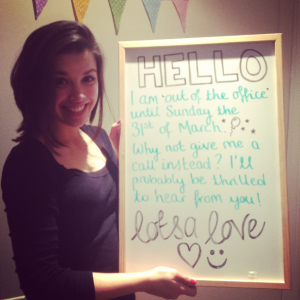 HELLO
I am "out of the office"
until Sunday the
31st of March.
Why not give me a
call instead? I'll
probably be thrilled
to hear from you!
lotsa love